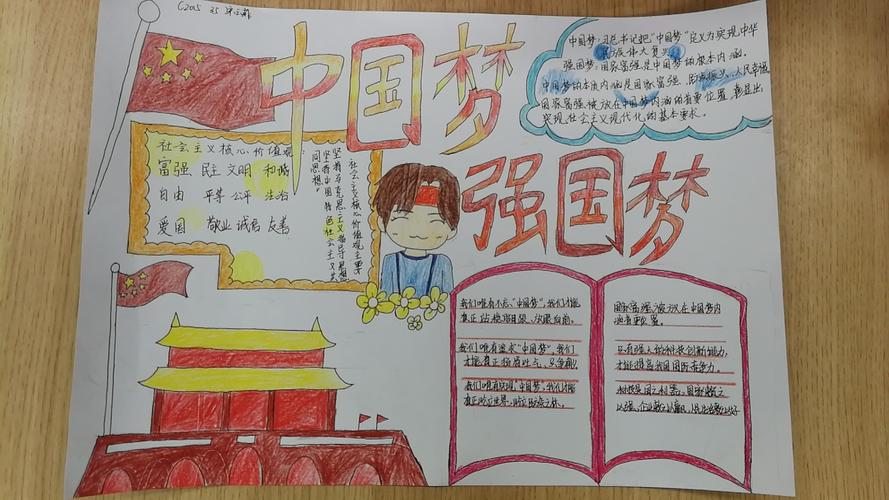 C2015
中国梦
强国梦
中国梦:习总书记把"中国梦"定义为实现中华
民族伟大复兴
强国梦:国家富强是中国梦的根本内涵。
中国梦的本质内涵是国家富强、民族振兴、人民幸福
国家富强被放在中国梦内涵的首要位置,彰显出
实现社会主义现代化的基本要求。
社会主义核心价值观:
富强 民主 文明 和谐
自由 平等 公平
爱国 敬业 诚信 友善
社会主义核心价值观主要
坚持马克思主义指导思想
坚持中国特色社会主义共
同思想。
我们唯有不忘"中国梦",我们才能
真正站稳脚跟、放眼
我们唯有追求"中国梦",我们
才能真正扬眉吐气、
我们唯有实现"中国梦",我们才能
真正屹立世界、屹立民族之林。
国家富强被放在中国梦内
涵首要位置。
只有强大的科技创新能力,
才能提高我国国际竞争力。
科技是国之利器,国家赖之
以强,企业赖之以赢,人民生活赖之以好